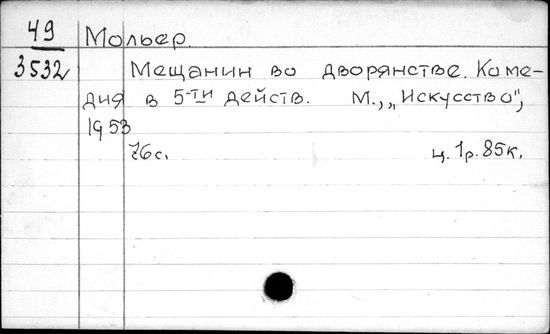 49 Мольер.
3532 Мещанин во дворянстве. Коме-
дия в 5-ти действ. М., „Искусство",
1953
76с. ц. 1р. 85к.